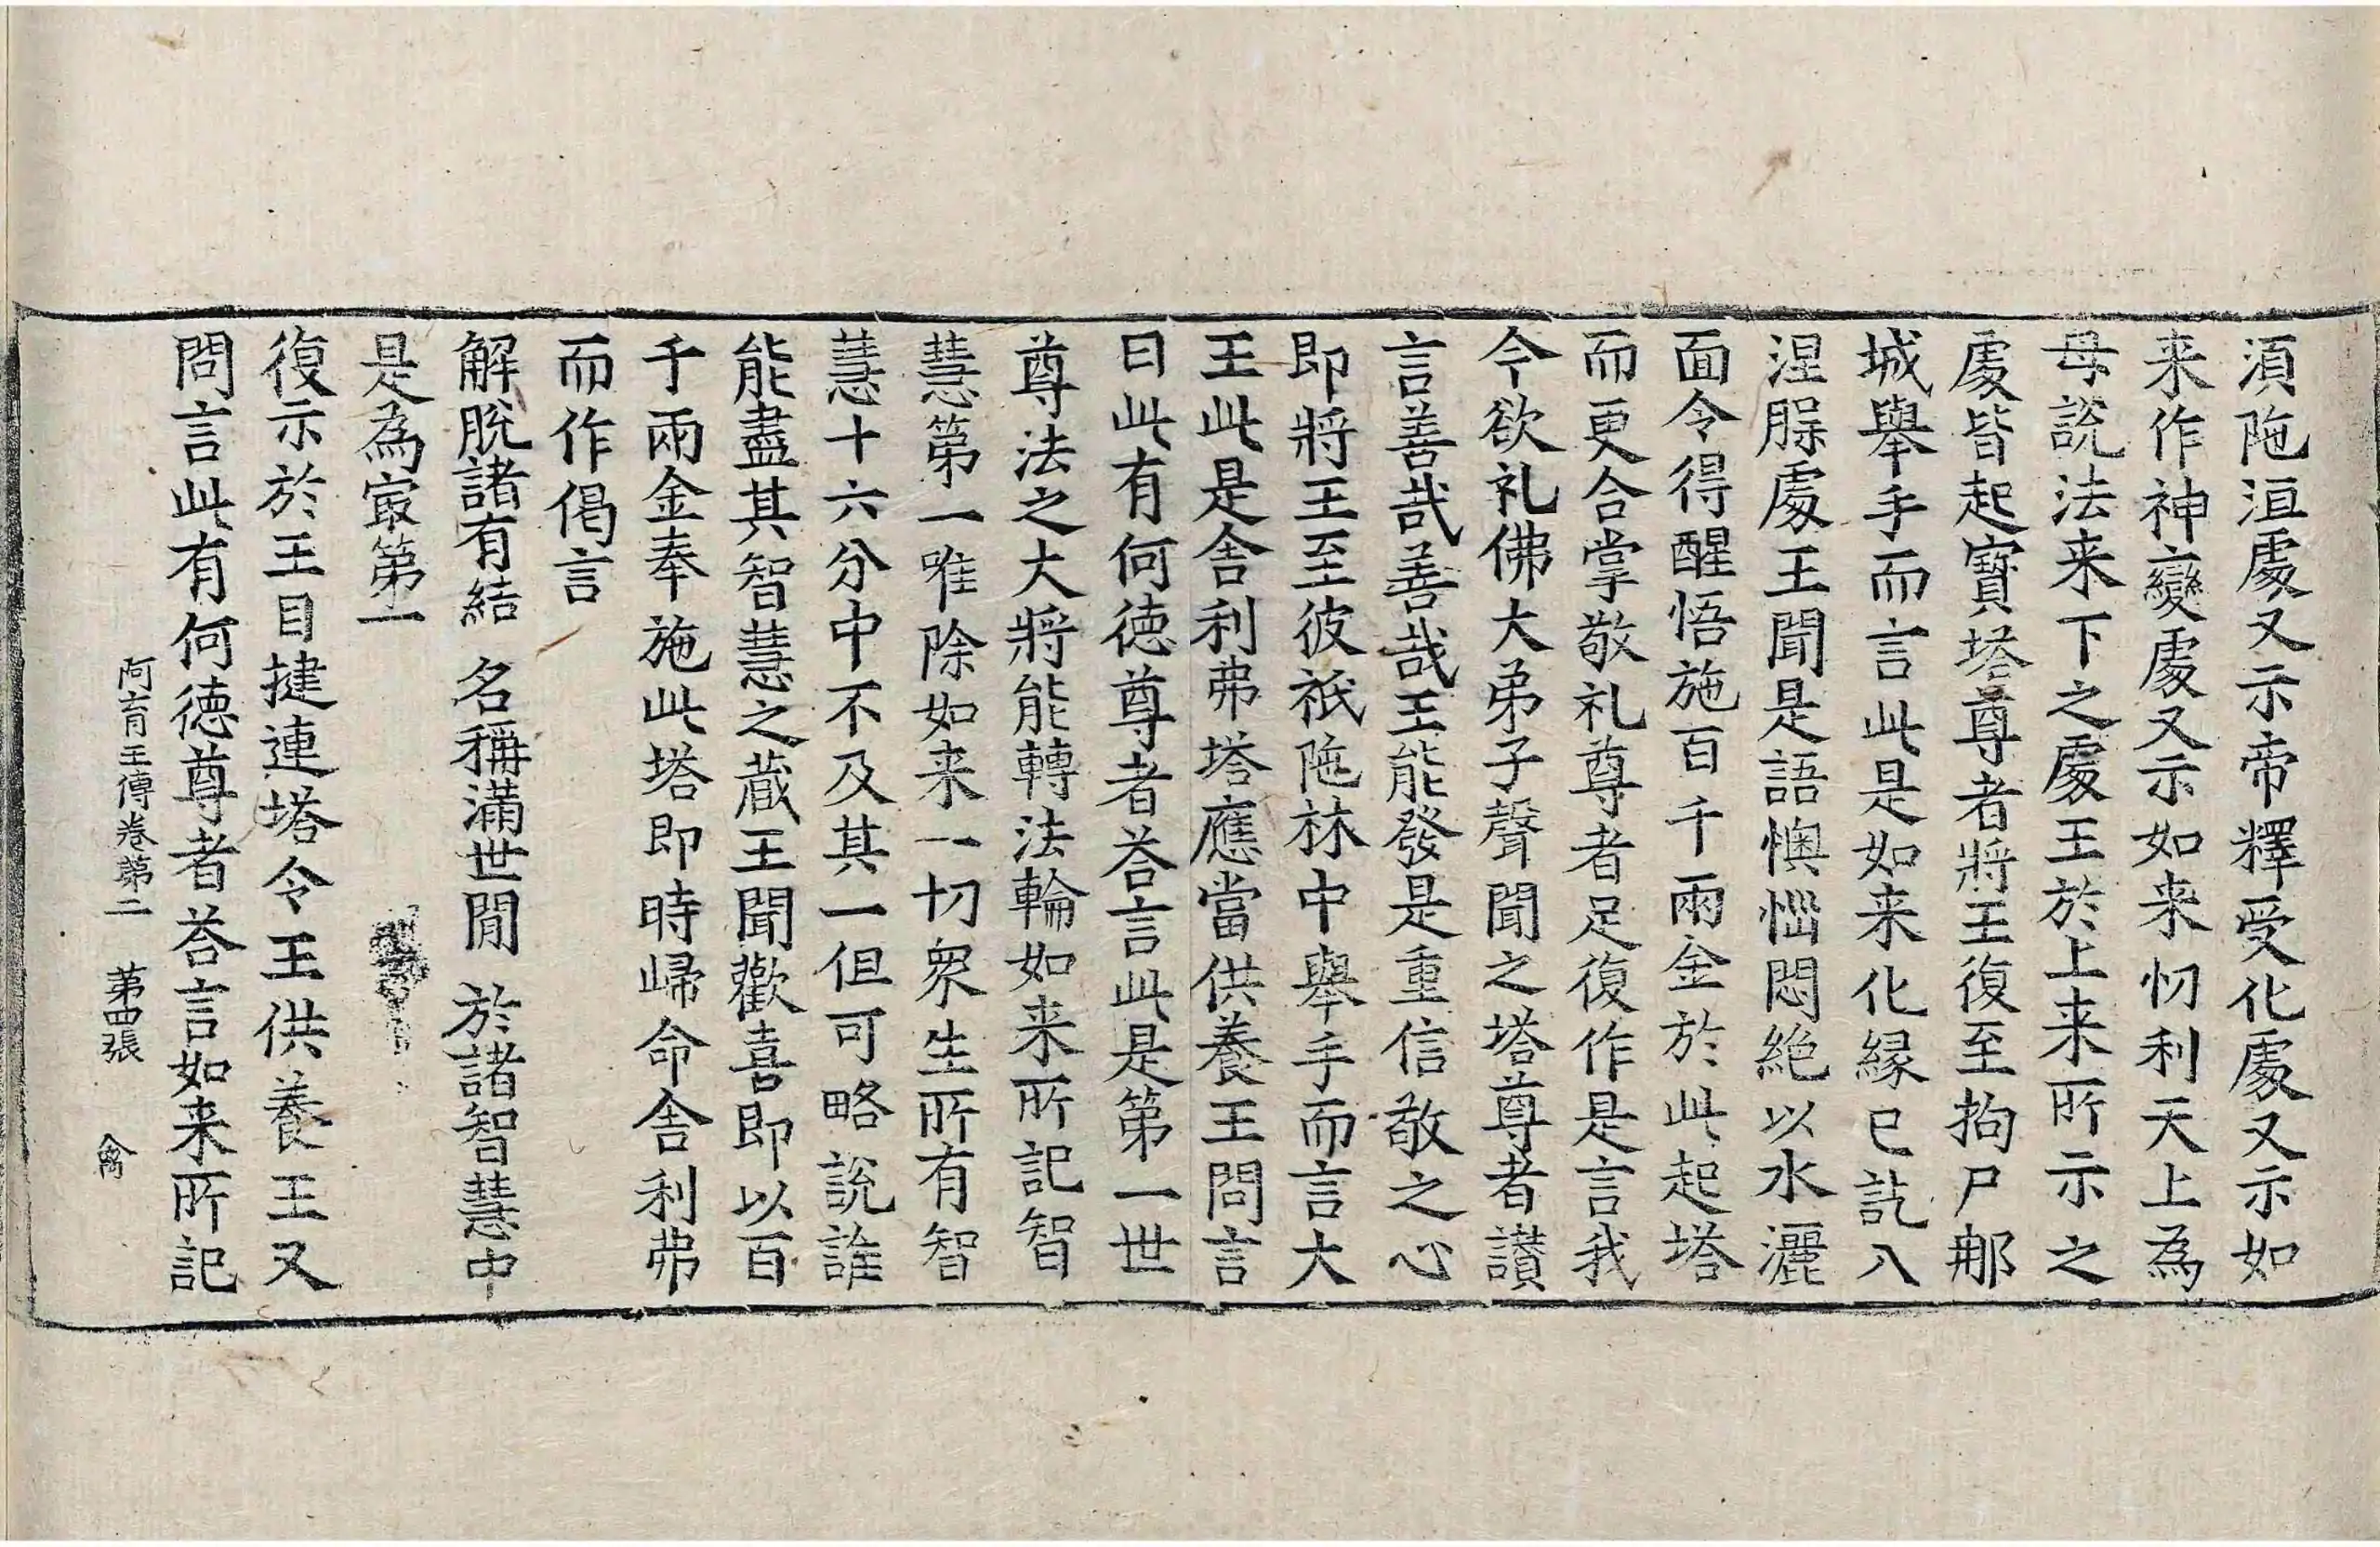 湏陁洹處又示帝釋受化處又示如
来作神變處又示如来忉利天上為
母說法来下之處王於上来所示之
處皆起寶塔尊者將王復至拘尸郍
城舉手而言此是如来化緣已訖入
涅脭處王聞是語懊惱悶絶以水灑
面令得醒悟施百千兩金於此起塔
而更合掌敬礼尊者足復作是言我
今欲礼佛大弟子聲聞之塔尊者讃
言善哉善哉王能發是重信敬之心
即將王至彼祇陁林中舉手而言大
王此是舍利弗塔應當供養王問言
曰此有何徳尊者荅言此是第一世
尊法之大將能轉法輪如来所記智
慧第一唯除如来一切衆生所有智
慧十六分中不及其一但可略說誰
能盡其智慧之蔵王聞歡喜即以百
千兩金奉施此塔即時歸命舍利弗
而作偈言
解脫諸有結 名稱滿世閒 於諸智慧中
是為㝡第一
復示於王目揵連塔令王供養王又
問言此有何徳尊者荅言如来所記
阿育王傳卷第二 第四張 禽